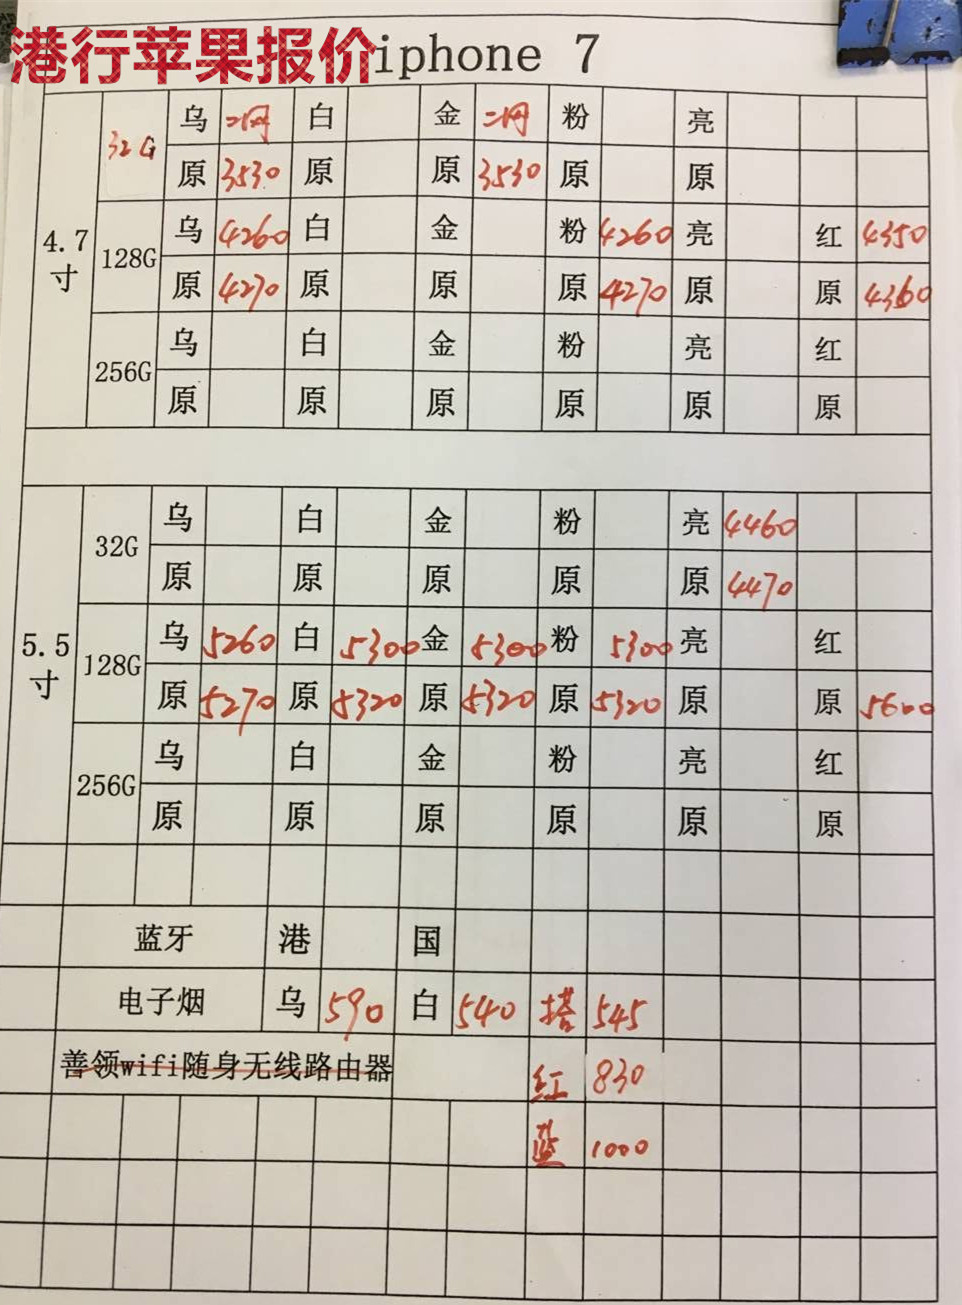 港行苹果报价 iphone 7
4.7寸 32G 乌 二网 白 金 二网 粉 亮
原 3530 原 原 3530 原 原
128G 乌 4260 白 金 粉 4260 亮 红 4350
原 4270 原 原 原 4270 原 原 4360
256G 乌 白 金 粉 亮 红
原 原 原 原 原 原
5.5寸 32G 乌 白 金 粉 亮 4460
原 原 原 原 原 4470
128G 乌 5260 白 5300 金 5300 粉 5300 亮 红
原 5270 原 5320 原 5320 原 5320 原 原 5600
256G 乌 白 金 粉 亮 红
原 原 原 原 原 原
蓝牙 港 国
电子烟 乌 590 白 540 搭 545
善领wifi随身无线路由器 红 830
蓝 1000